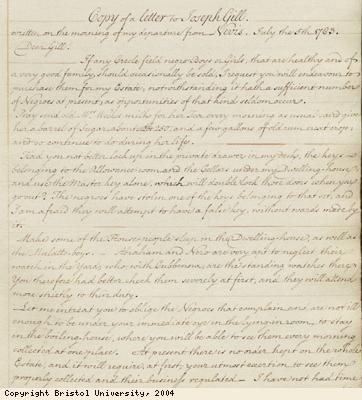 Copy of a letter to Joseph Gill.
written on the morning of my departure from Nevis. July the 5th 1783.
Dear Gill.
If any Creole field negro Boys or Girls, that are healthy and of
a very good family, should occasionally be sold, I request you will endeavour to
purchase them for my Estate, notwithstanding it hath a sufficient number
of Negroes at present, as opportunities of that kind seldom occur.
Pray send old Mrs. milk for her Tea every morning as usual and give
her a barrel of Sugar about and a few gallons of old rum next crop;
and so continue to do during her life.
Had you not better lock up in the private drawer in my desk, the keys
belonging to the Allowance room and the Cellars under my Dwelling-house,
and use the Master key alone, which will double lock those doors when you
go out? The negroes have stolen one of the keys belonging to that set, and
I am afraid they will attempt to have a false key, without wards made by
it.
Make some of the House people sleep in the Dwelling house, as well as
the Mulatto boys. — Abraham and Nero are very apt to neglect their
watch in the Yard; who, with Cubbenna, are the standing watches there.
You therefore had better check them severely at first, and they will attend
more strictly to their duty.
Let me intreat you to oblige the Negroes that complain, and are not ill
enough to be under your immediate eye in the lying in room, to stay
in the boiling house, where you will be able to see them every morning
collected at one place. At present there is no order kept on the whole
Estate, and it will require, at first, your utmost exertion to see them
properly collected and their business regulated — I have not had time
Copyright Bristol University, 2004